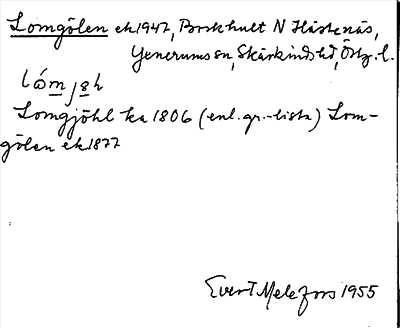 Lomgölen ek 1947, Borkhult N Hästenäs,
Yxnerums sn, Skärkinds hd, Östg. l.
Lomgjöhl ka 1806 (enl. gr.-lista) Lom-
gölen ek 1877
Evert Melefors 1955